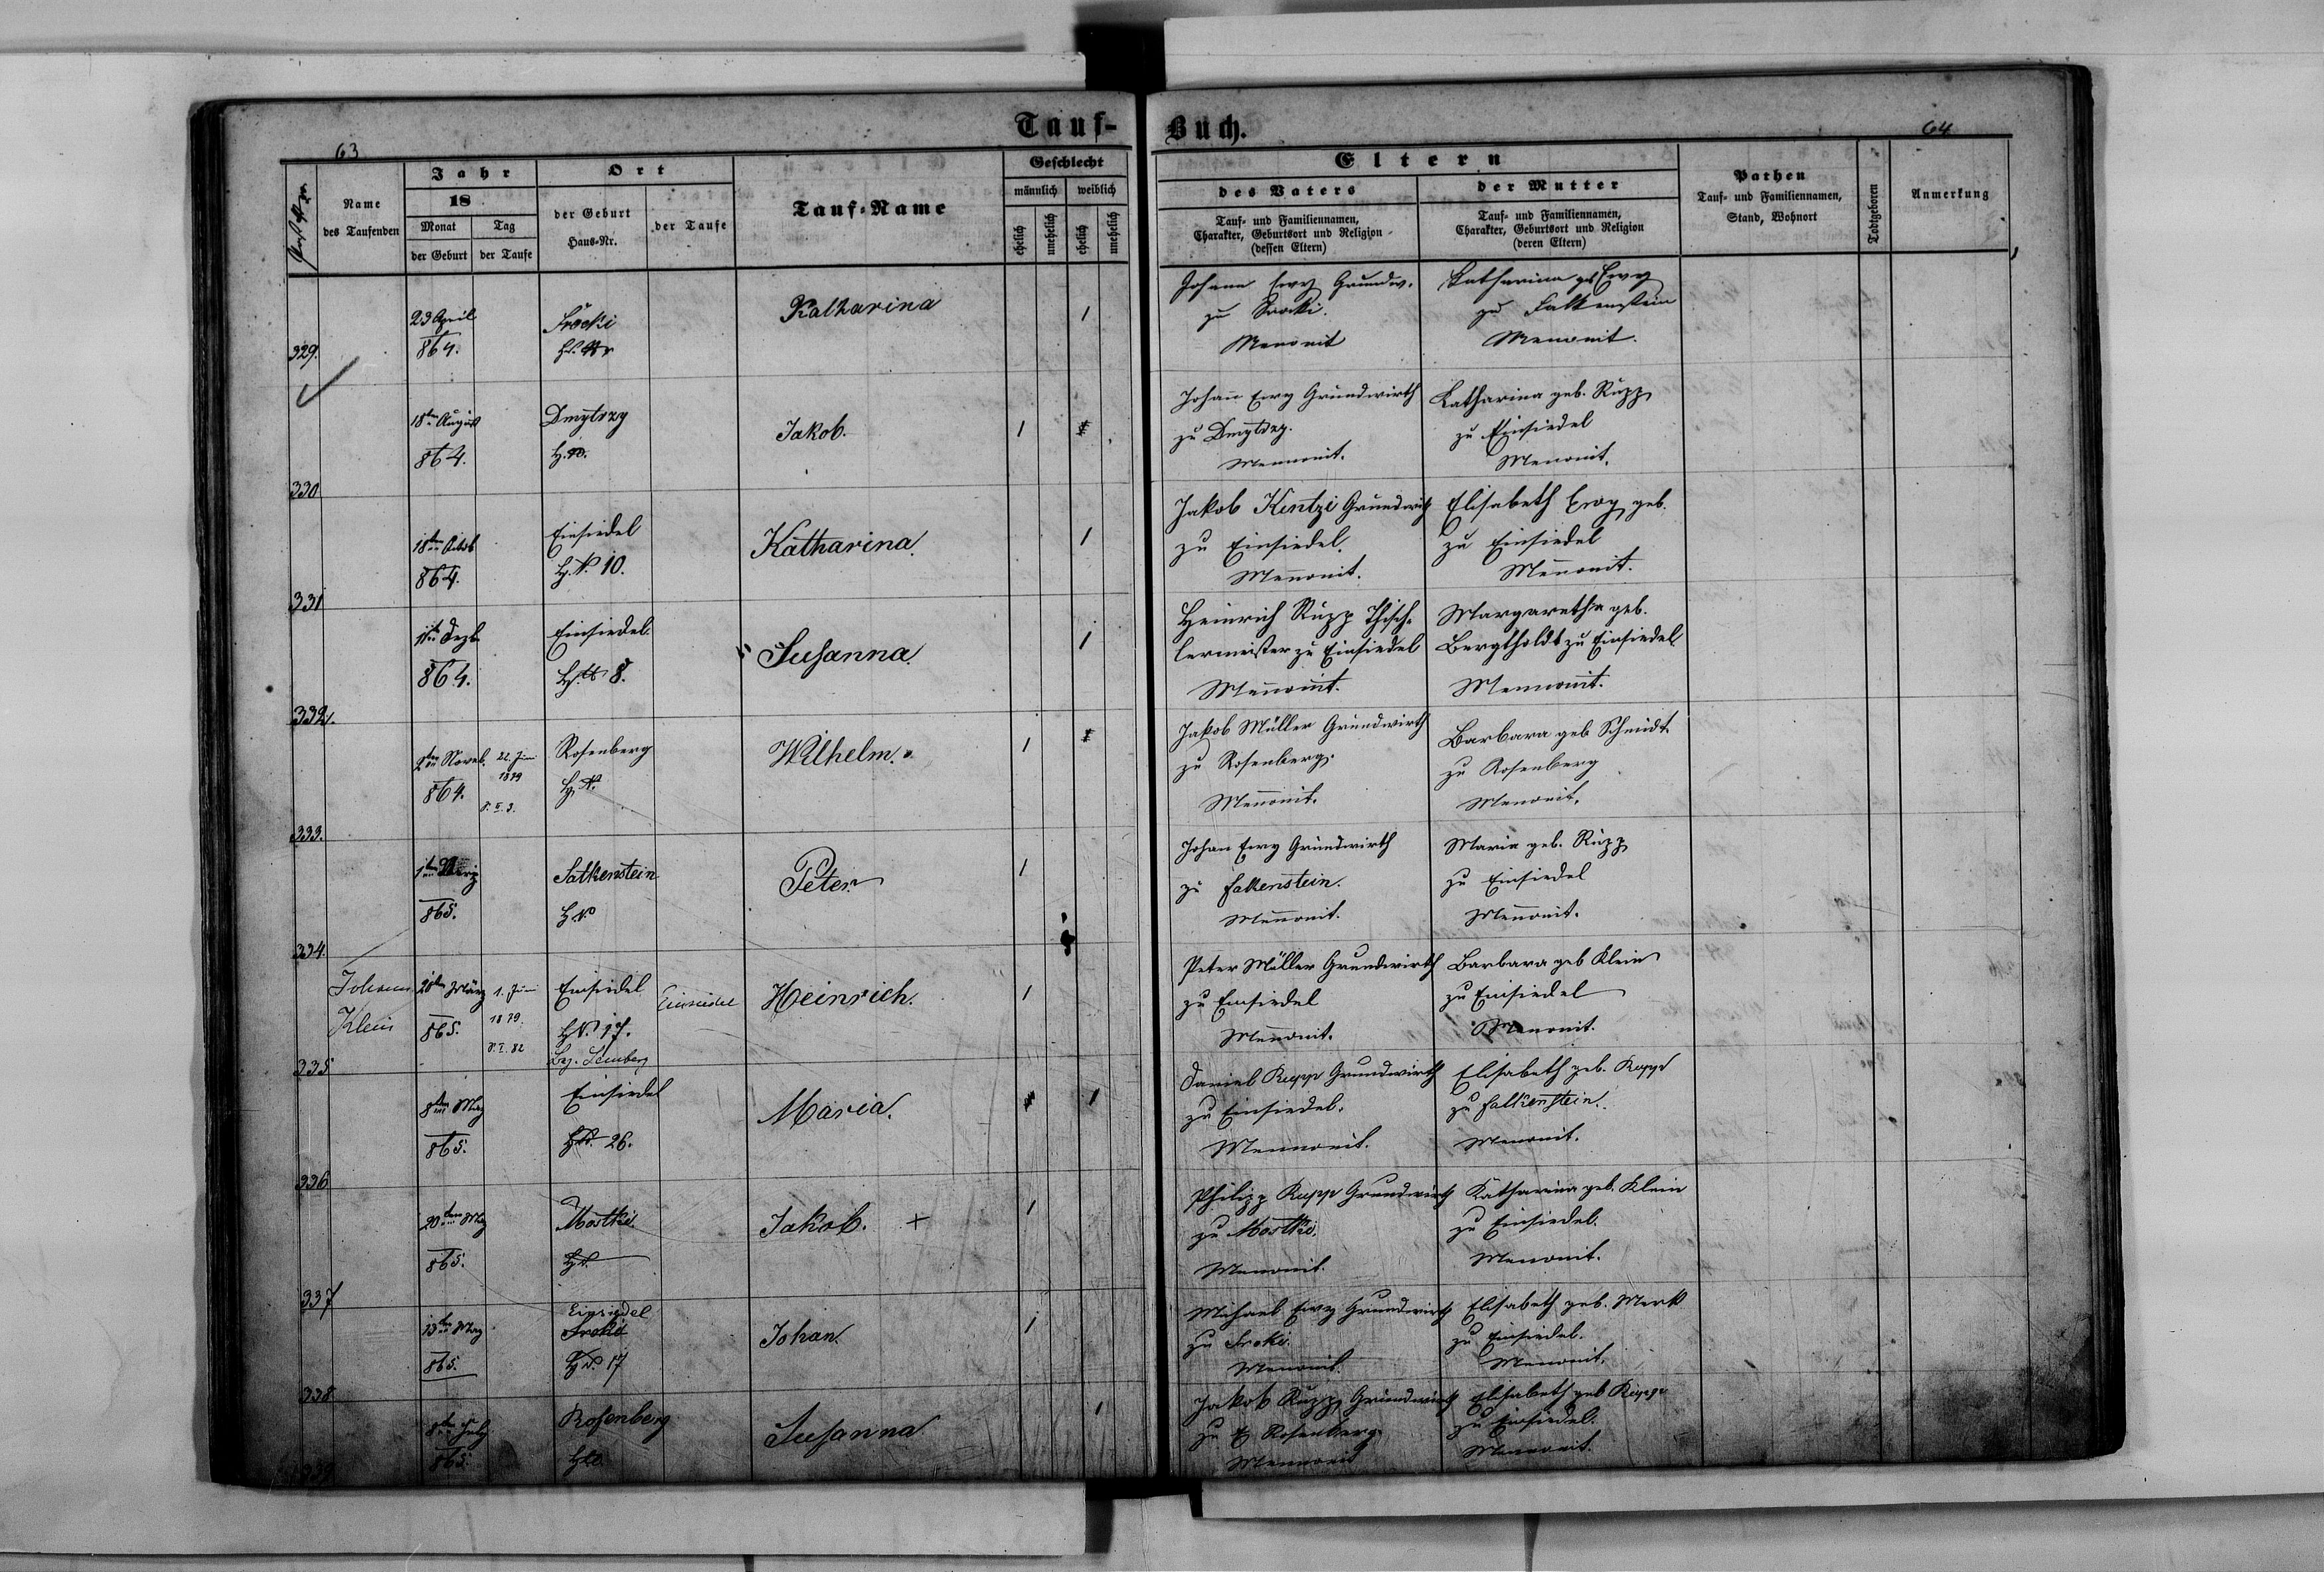 Tauf-
Buch.
63
64
Name
des Taufenden
Jahr
18
Monat
Tag
der Geburt
der Taufe
Ort
der Geburt
Haus-Nr.
der Taufe
Tauf-Name
Geschlecht
männlich
weiblich
ehelich
unehelich
ehelich
unehelich
Eltern
des Vaters
Tauf- und Familiennamen,
Charakter, Geburtsort und Religion
(dessen Eltern)
der Mutter
Tauf- und Familiennamen,
Charakter, Geburtsort und Religion
(deren Eltern)
Pathen
Tauf- und Familiennamen,
Stand, Wohnort
Todtgeboren
Anmerkung
329.
23 April
864.
Sroki
Katharina
1
Johann Ewy Grundw.
zu Sroki.
Menonit
Katharina geb Ewy
zu Falkenstein
Menonit.
330
18ten August
864.
Dmytrzy
H. No.
Jakob.
1
Johann Ewy Grundwirth
zu Dmytrzy.
Mennonit.
Katharina geb. Rupp
zu Einsiedel
Menonit.
331
18ten Octob
864.
Einsiedel
H. N. 10.
Katharina.
1
Jakob Kintzi Grundwirth
zu Einsiedel.
Menonit.
Elisabeth Ewy geb.
zu Einsiedel
Menonit.
332.
Dezb
864.
Einsiedel
8.
Susanna.
1
Heinrich Rupp Thisch-
lermeister zu Einsiedel
Menonit.
Margaretha geb.
Bergtholdt zu Einsiedel
Mennonit.
333.
2ten Noveb.
864.
22. Juni
1879
Rosenberg
H. N.
Wilhelm.
1
Jakob Müller Grundwirth
zu Rosenberg.
Menonit.
Barbara geb Schmidt
zu Rosenberg
Menonit.
334.
1ten März
865.
Falkenstein
H. No
Peter
1
Johan Ewy Grundwirth
zu Falkenstein.
Menonit.
Maria geb. Rupp
zu Einsiedel
Menonit.
335
Johann
Klein
28ten März
865.
1. Juni
1879.
Einsiedel
H N. 17.
Bez. Lemberg
Einsiedel
Heinrich.
1
Peter Müller Grundwirth
zu Einsiedel
Menonit.
Barbara geb Klein
zu Einsiedel
Menonit.
336
8ten May
865.
Einsiedel
26.
Maria.
1
Daniel Rupp Grundwirth
zu Einsiedel.
Mennonit.
Elisabeth geb. Rupp
zu Falkenstein.
Menonit.
337
20ten May
865.
Mostki.
Jakob. +
1
Philipp Rupp Grundwirth
zu Mostki.
Menonit.
Katharina geb. Klein
zu Einsiedel.
Menonit.
338
13ten May
865.
Einsiedel
Sroki
H N. 17
Johan.
1
Michael Ewy Grundwirth
zu Sroki.
Menonit.
Elisabeth geb. Merk
zu Einsiedel.
Menonit.
339
8ten July
865.
Rosenberg
Susanna
1
Jakob Rupp Grundwirth
zu Rosenberg.
Mennonit
Elisabeth geb Rupp
zu Einsiedel.
Mennonit.